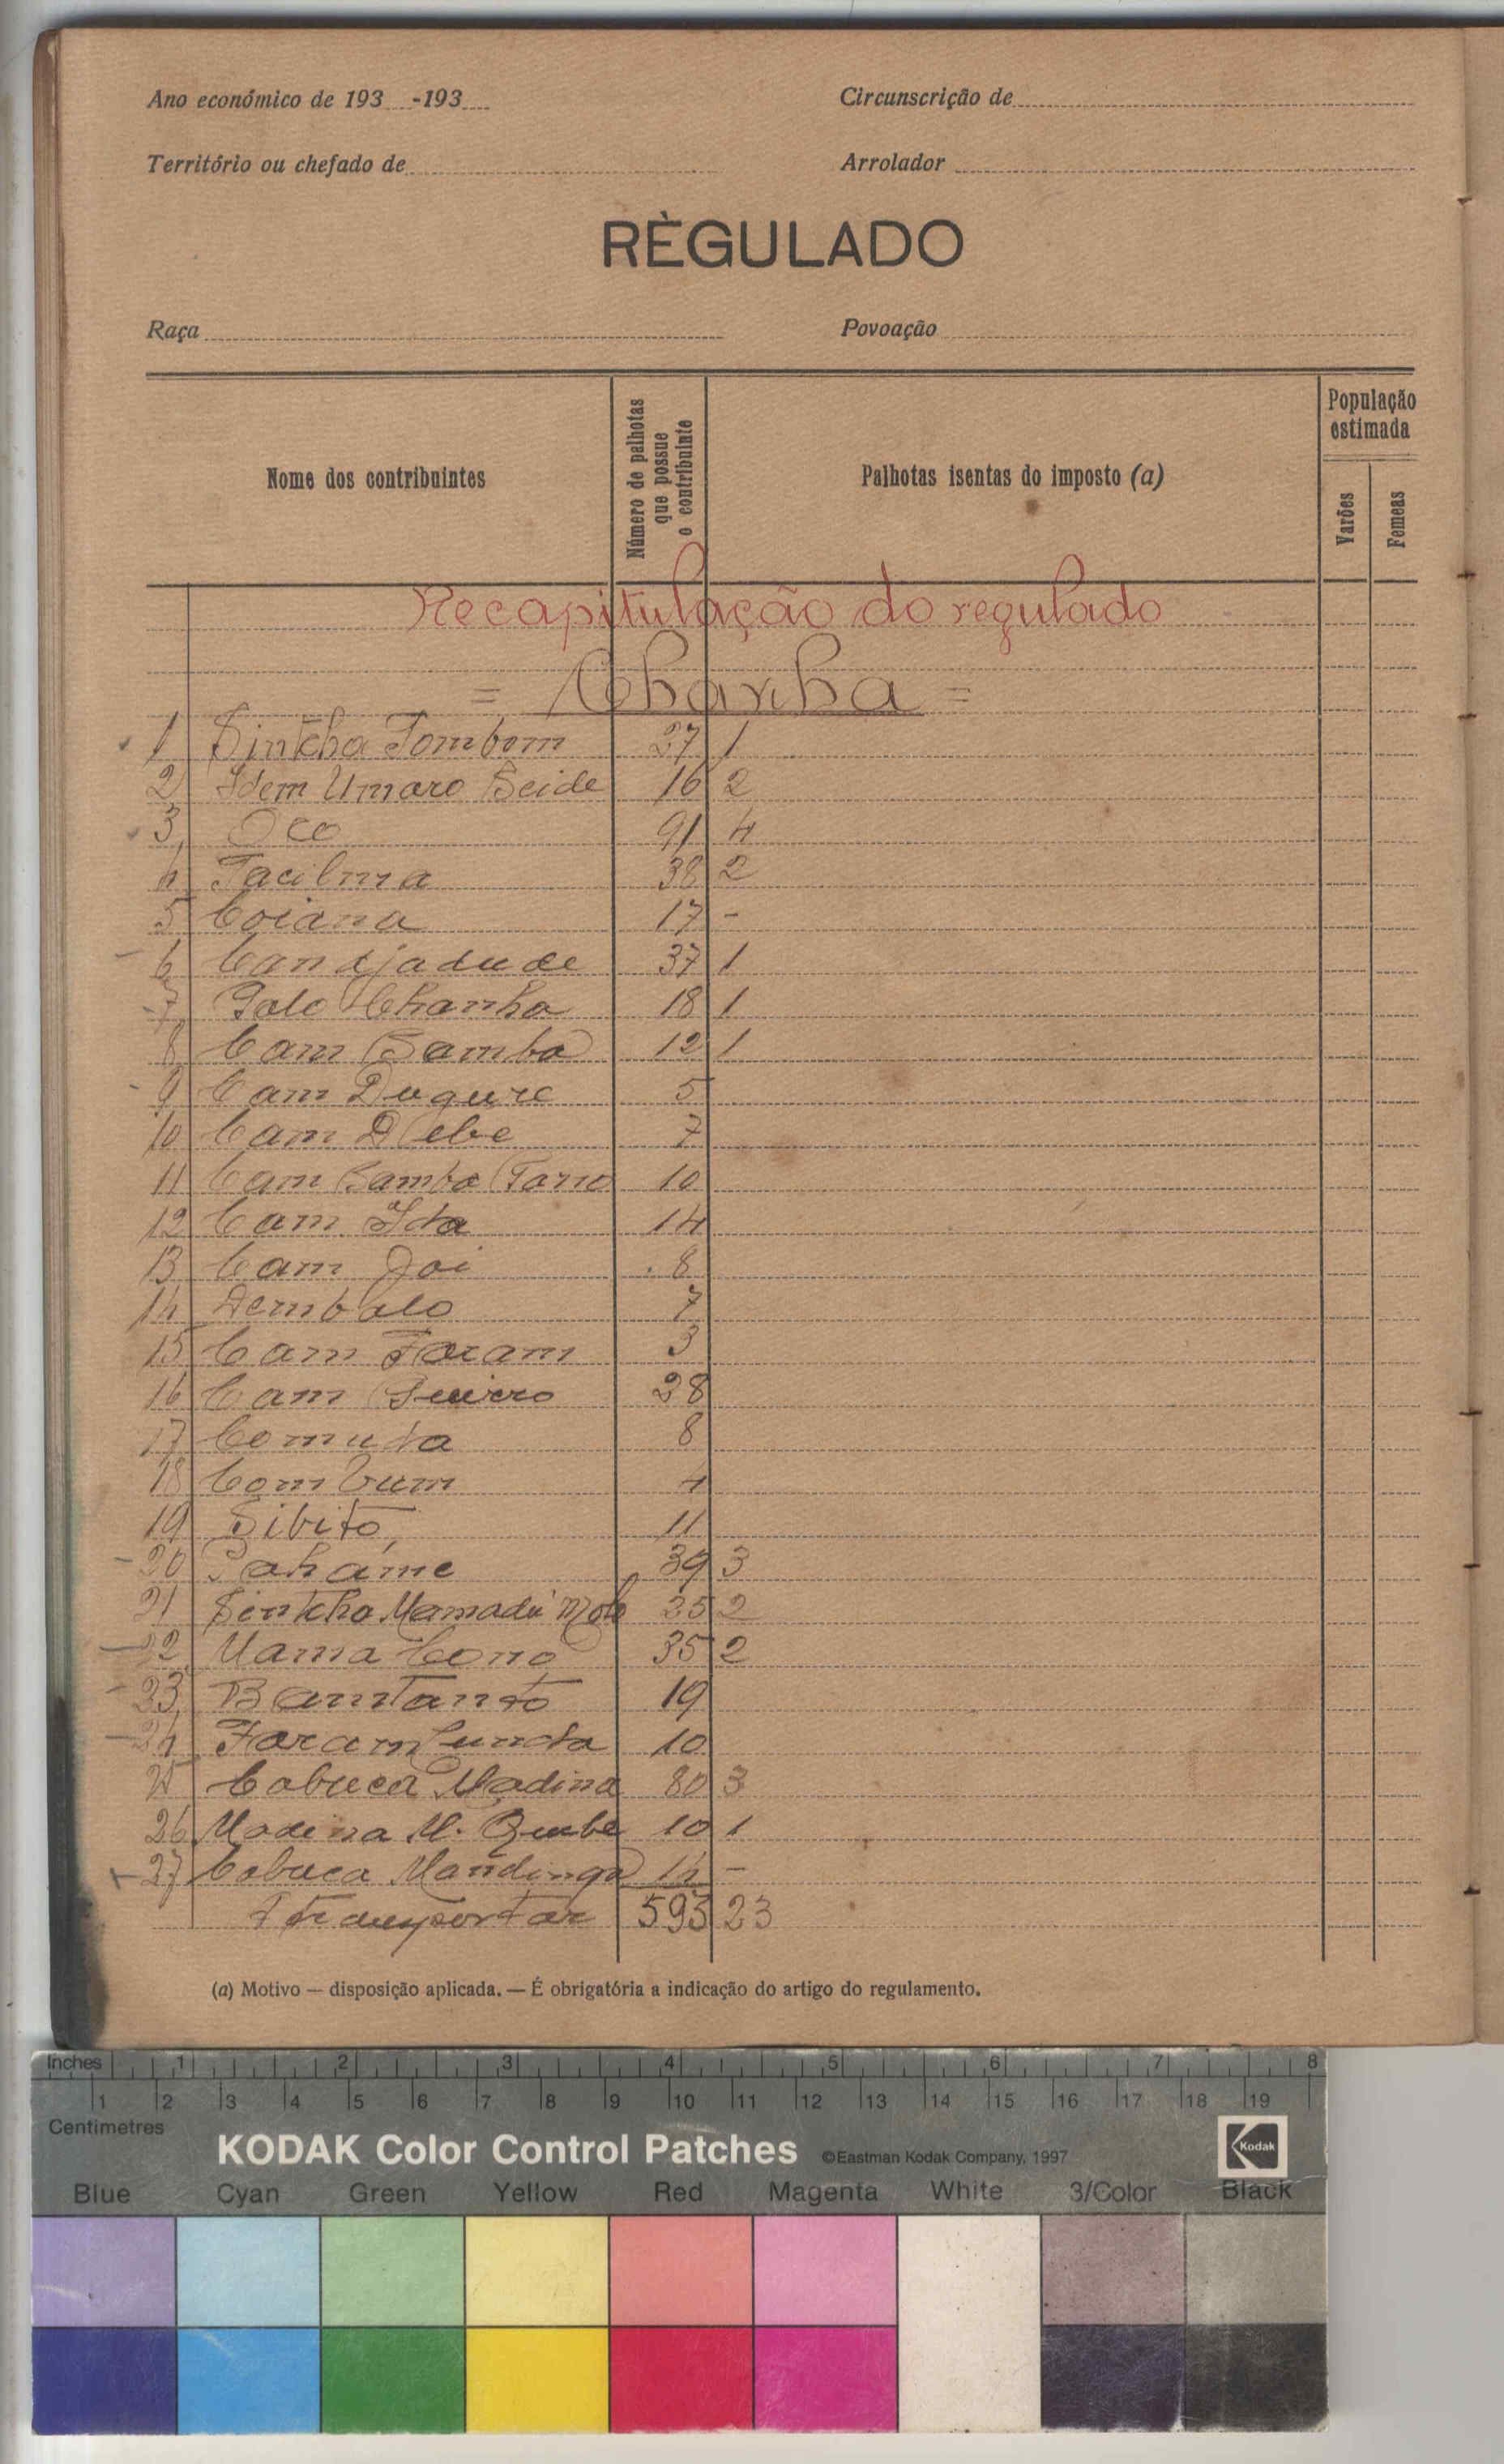 Ano económico de 193 -193
Circunscrição de
Território ou chefado de
Arrolador
RÈGULADO
Raça
Povoação
Nome dos contribuintes
Número de palhotas que possue o contribuinte
Palhotas isentas do imposto (a)
População estimada
Varões
Femeas
Recapitulação do regulado
= Chanha =
1 Sintcha Tombom 27 1
2 Idem Umaro Seide 16 2
3 Oco 91 4
4 Tacilma 38 2
5 Coiana 17 -
6 Candjadude 37 1
7 Golo Chanha 18 1
8 Cam Samba 12 1
9 Cam Dugure 5
10 Cam 7
11 Cam Samba 10
12 Cam Ida 14
13 Cam Joi 8
14 Dembalo 7
15 Cam Faram 3
16 Cam 28
17 Comuda 8
18 Com 4
19 Sibitó 11
20 39 3
21 Sintcha Mamadú 2
22 Uama Cono 35 2
23 Bantanto 19
24 Faramcunda 10
25 Cabuca Madina 80 3
26 Madina M. 10 1
27 Cabuca Mandinga 14 -
Transportar 593 23
(a) Motivo — disposição aplicada. — É obrigatória a indicação do artigo do regulamento.
Inches 1 2 3 4 5 6 7 8
1 2 3 4 5 6 7 8 9 10 11 12 13 14 15 16 17 18 19
Centimetres
KODAK Color Control Patches ©Eastman Kodak Company, 1997 Kodak
Blue Cyan Green Yellow Red Magenta White 3/Color Black